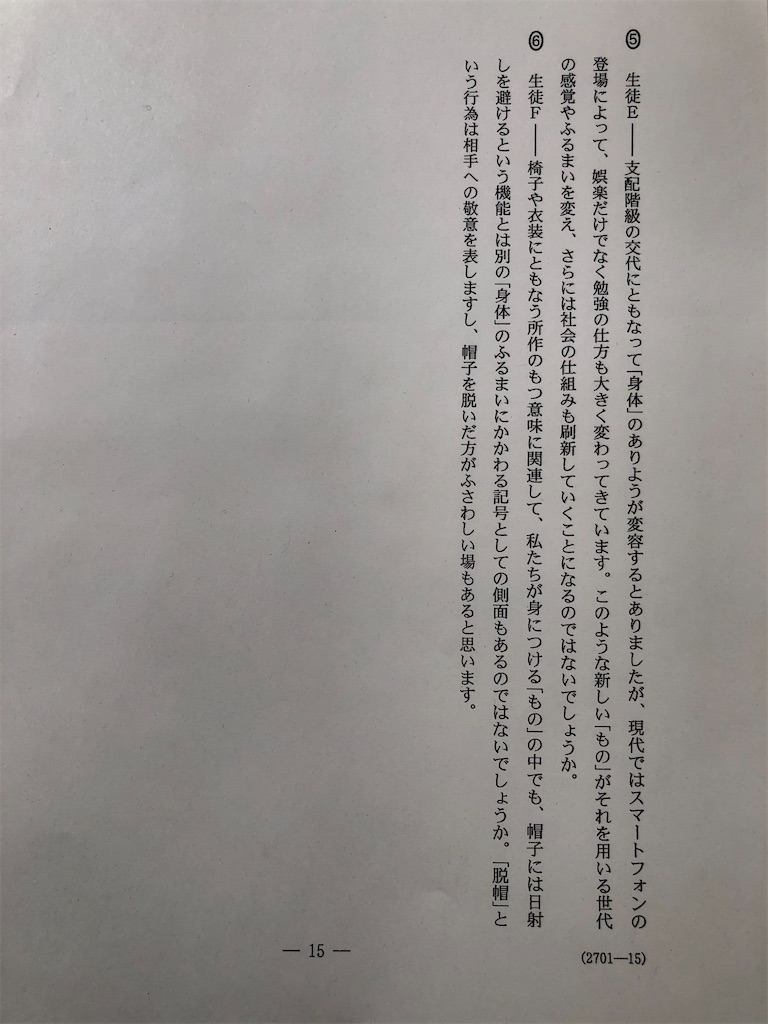 ⑤ 生徒E――支配階級の交代にともなって「身体」のありようが変容するとありましたが、現代ではスマートフォンの
登場によって、娯楽だけでなく勉強の仕方も大きく変わってきています。このような新しい「もの」がそれを用いる世代
の感覚やふるまいを変え、さらには社会の仕組みも刷新していくことになるのではないでしょうか。
⑥ 生徒F――椅子や衣装にともなう所作のもつ意味に関連して、私たちが身につける「もの」の中でも、帽子には日射
しを避けるという機能とは別の「身体」のふるまいにかかわる記号としての側面もあるのではないでしょうか。「脱帽」と
いう行為は相手への敬意を表しますし、帽子を脱いだ方がふさわしい場もあると思います。
― 15 ―
(2701―15)